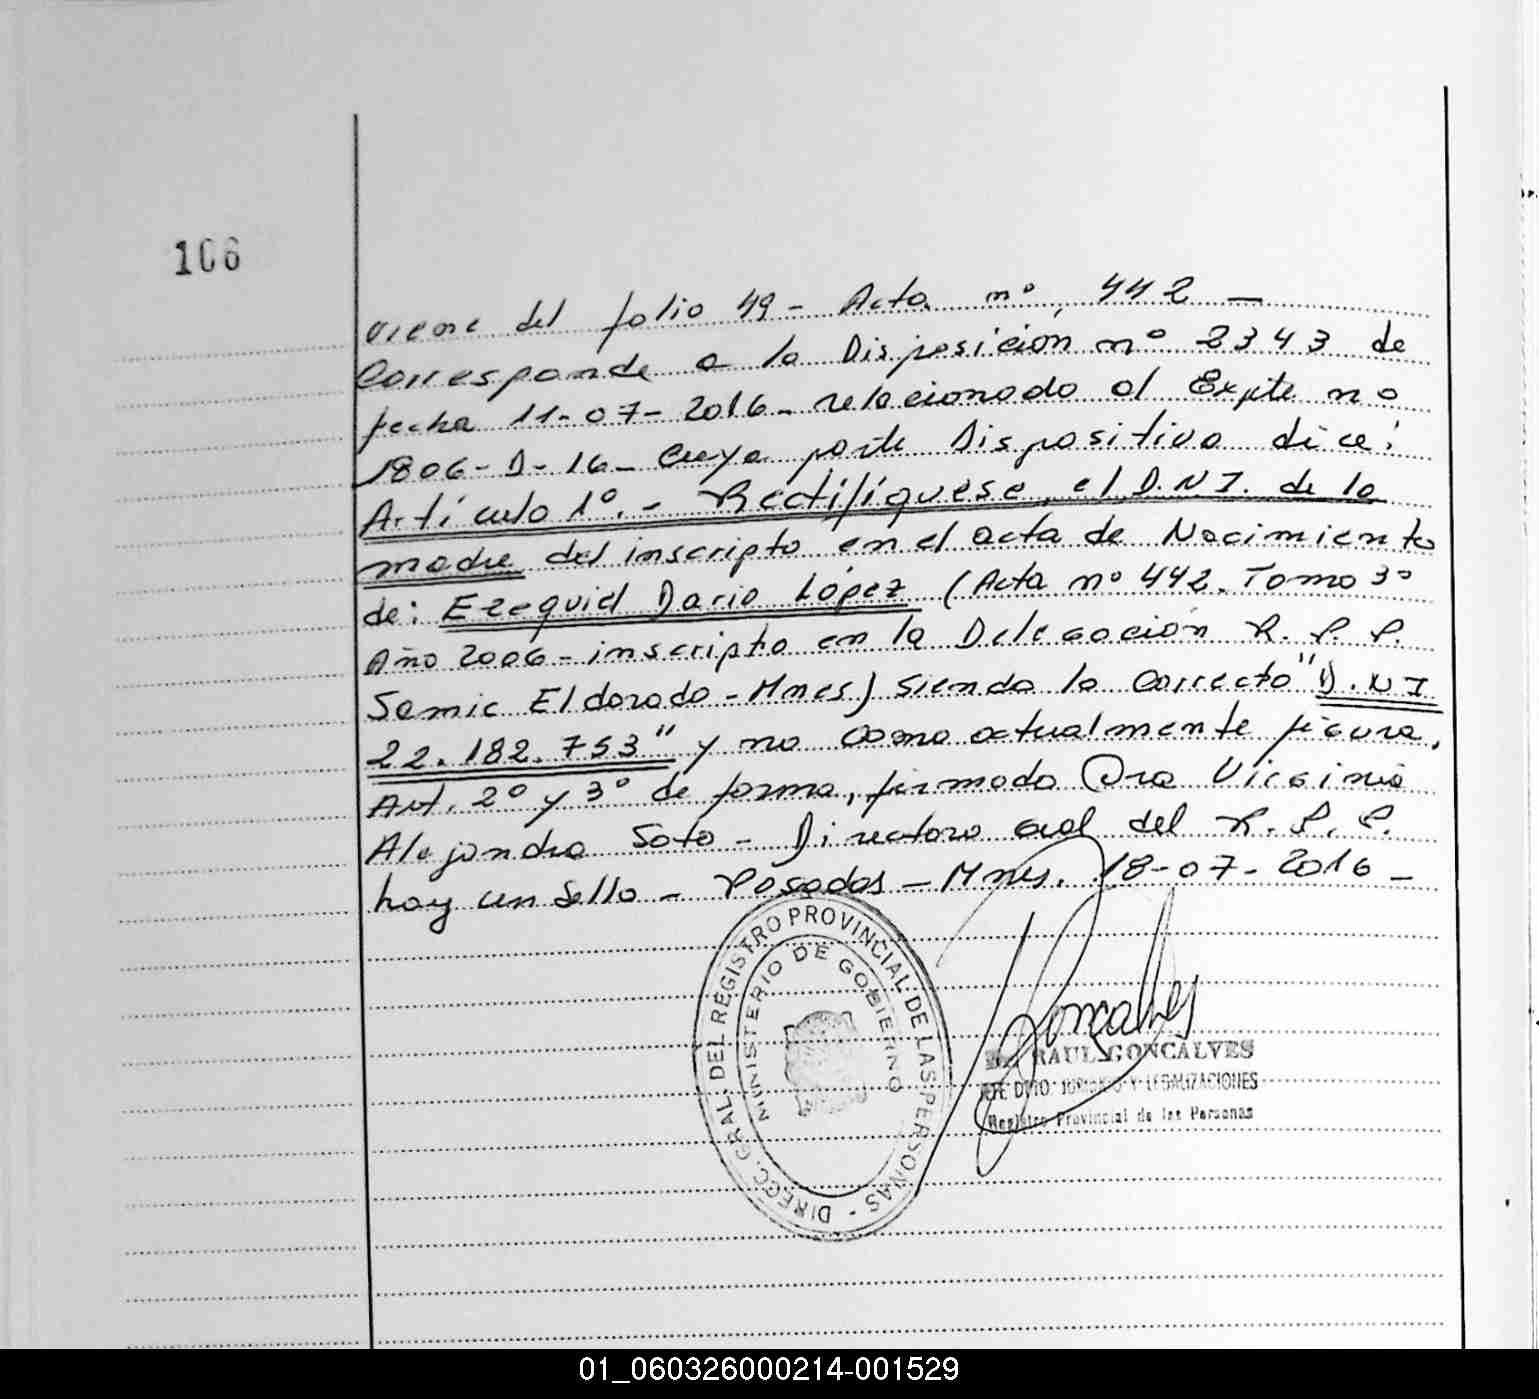 106
viene del folio 49 - Acta nº 442 —
Corresponde a la Disposición nº 2343 de
fecha 11-07-2016 - relacionado al Expte nº
1806-D-16 - Cuya parte Dispositiva dice:
Artículo 1º. - Rectifíquese el D.N.I. de la
madre del inscripto en el acta de Nacimiento
de: Ezequiel Dario López (Acta nº 442. Tomo 3º
Año 2006 - inscripto en la Delegación R. P. P.
Samic Eldorado - Mnes) siendo lo correcto "D.N.I
22.182.753" y no como actualmente figura.
Art. 2º y 3º de forma, firmado Dra Virginia
Alejandra Soto - Directora Gral del R. P. P.
hay un Sello - Posadas - Mnes. 18-07-2016 -
DIRECC. GRAL. DEL REGISTRO PROVINCIAL DE LAS PERSONAS -
MINISTERIO DE GOBIERNO
Goncalves
RAUL GONCALVES
JEFE DPTO. JURIDICO Y LEGALIZACIONES
Registro Provincial de las Personas
01_060326000214-001529